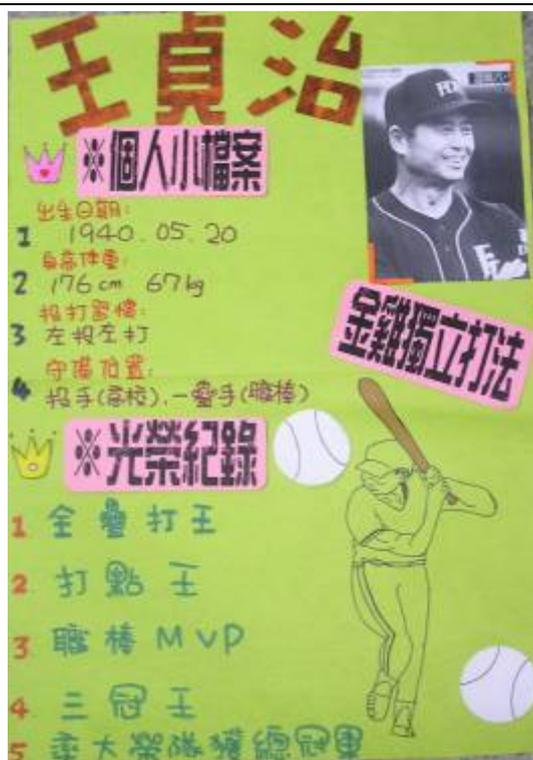 王貞治
※個人小檔案
1 出生日期:
1940.05.20
2 身高体重:
176cm 67kg
3 投打習慣:
左投左打
4 守備位置:
投手(高校),一壘手(職棒)
金雞獨立打法
※光榮紀錄
1 全壘打王
2 打點王
3 職棒MVP
4 三冠王
5 率大榮隊獲總冠軍